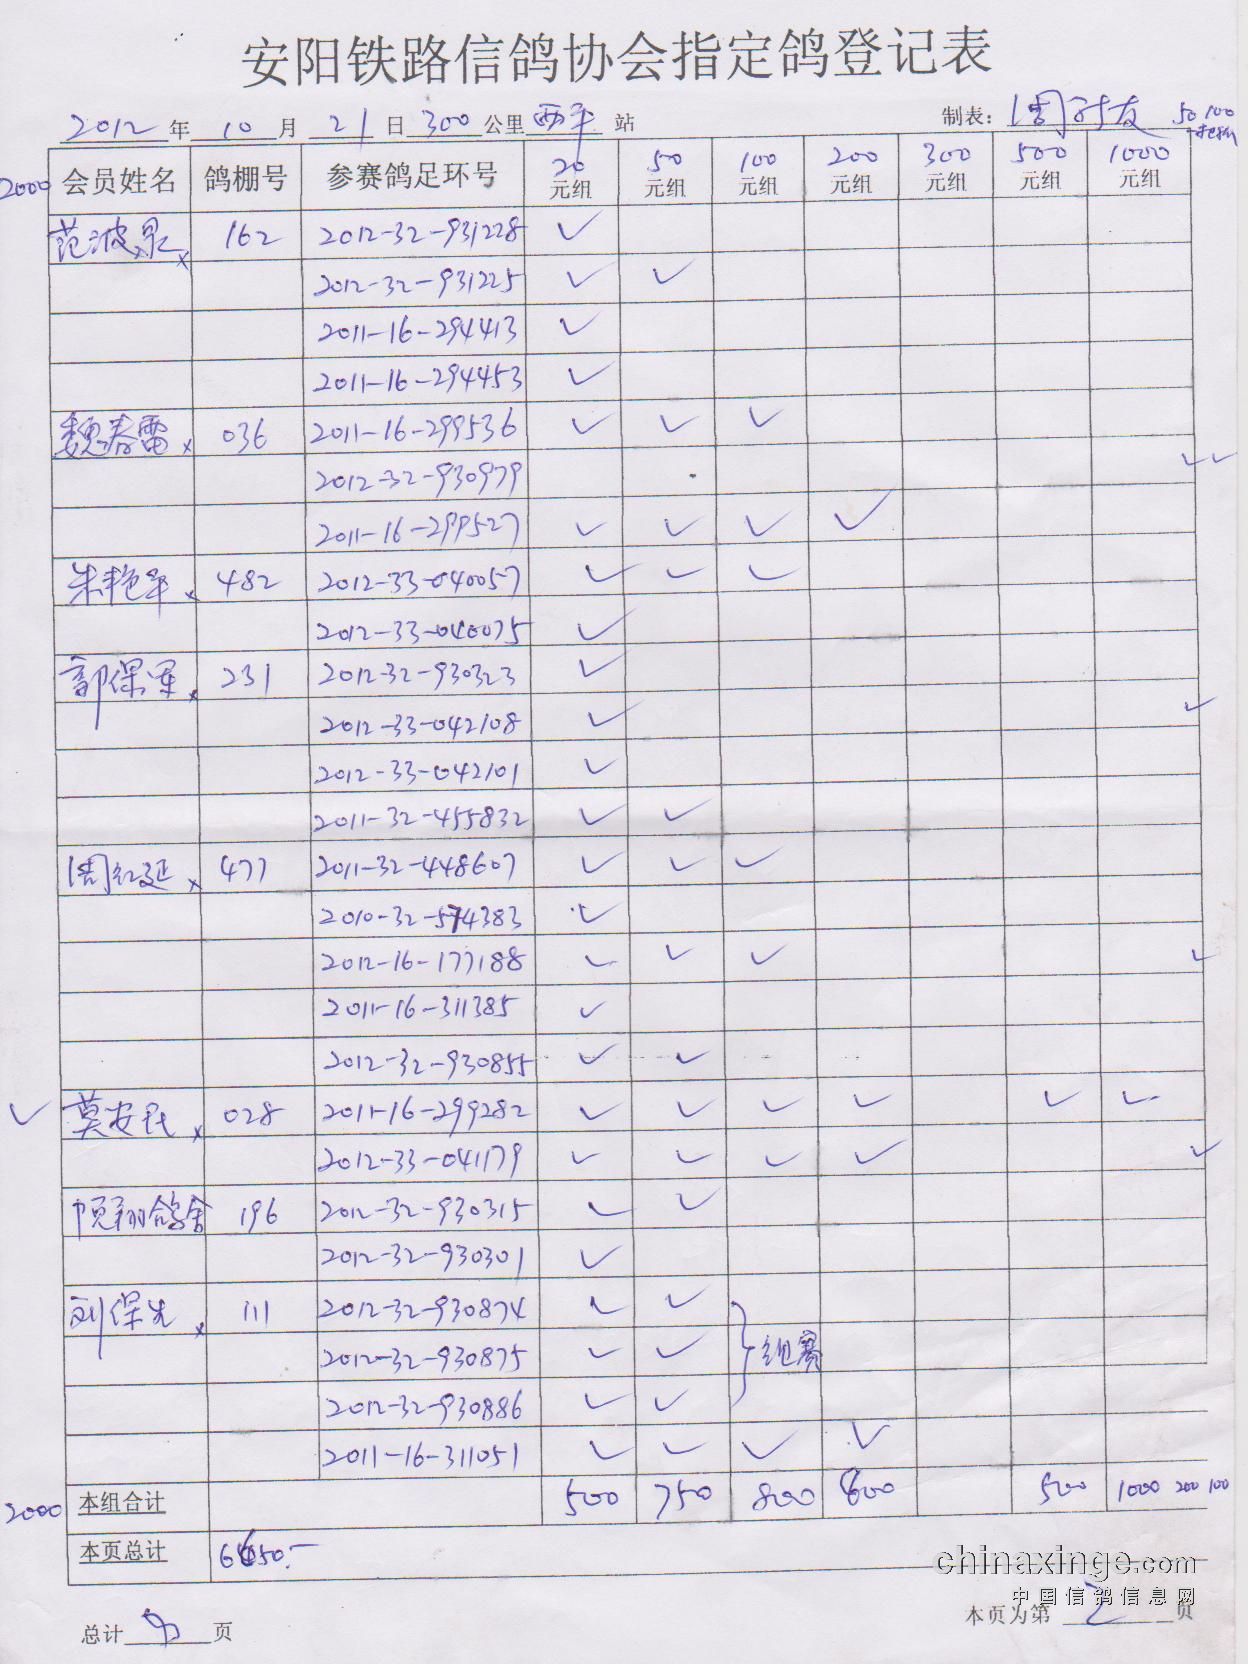 安阳铁路信鸽协会指定鸽登记表
2012 年 10 月 21 日 300 公里 西平 站 制表: 周 友 50 100
2000 会员姓名 鸽棚号 参赛鸽足环号 20元组 50元组 100元组 200元组 300元组 500元组 1000元组
范波 × 162 2012-32-931228 ✓
2012-32-931225 ✓ ✓
2011-16-294413 ✓
2011-16-294453 ✓
魏春雷 × 036 2011-16-299536 ✓ ✓ ✓
2012-32-930979 ✓✓
2011-16-299527 ✓ ✓ ✓ ✓
朱艳军 × 482 2012-33-040057 ✓ ✓ ✓
2012-33-040075 ✓
郭保军 × 231 2012-32-930323 ✓
2012-33-042108 ✓ ✓
2012-33-042101 ✓
2011-32-455832 ✓ ✓
周红延 × 477 2011-32-448607 ✓ ✓ ✓
2010-32-574383 ✓
2012-16-177188 ✓ ✓ ✓ ✓
2011-16-311385 ✓
2012-32-930855 ✓ ✓
✓ 莫安民 × 028 2011-16-299282 ✓ ✓ ✓ ✓ ✓ ✓
2012-33-041179 ✓ ✓ ✓ ✓ ✓
翔鸽舍 196 2012-32-930315 ✓ ✓
2012-32-930301 ✓
刘保先 × 111 2012-32-930874 ✓ ✓
2012-32-930875 ✓ ✓ } 组赛
2012-32-930886 ✓ ✓
2011-16-311051 ✓ ✓ ✓ ✓
2000 本组合计 500 750 800 800 500 1000 200 100
本页总计 6650.-
chinaxinge.com
中国信鸽信息网
总计 8 页 本页为第 2 页